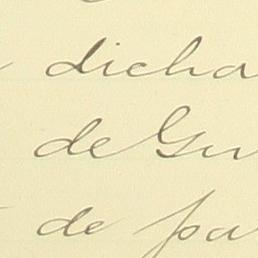 dicha
de Gu
de pa